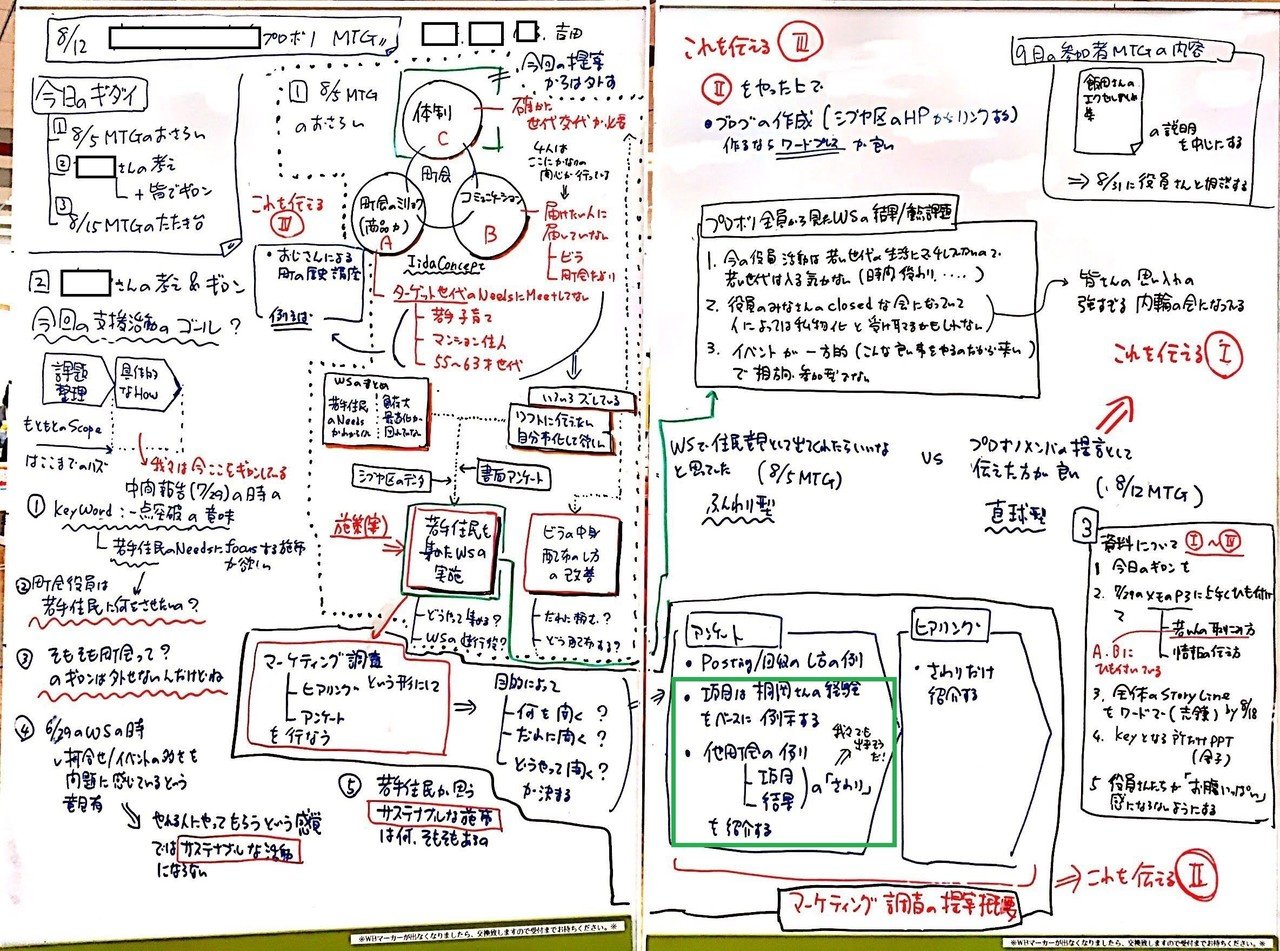 8/12 プロボノ MTG
吉田
今日のギダイ
1 8/5 MTGのおさらい
2 さんの考え
+ 皆でギロン
3 8/15 MTGのたたき台
1 8/5 MTG
のおさらい
今回の提案
からはハズす
体制
C
町会
町会のミリョク
(商品力)
A
コミュニケーション
B
Iida Concept
確かに
世代交代が必要
4人は
ここにかなりの
関心が行っている
届けたい人に
届いていない
ビラ
町会だより
これを伝える Ⅳ
・おじさんによる
町の歴史講座
例えば
ターゲット世代のNeedsにMeetしてない
若手子育て
マンション住人
55〜63才世代
2 さんの考え & ギロン
今回の支援活動のゴール?
課題
整理
具体的
なHow
もともとのScope
はここまでのハズ
我々は今ここをギロンしている
中間報告(7/29)の時の
① keyWord:一点突破の意味
若手住民のNeedsにfocusする施策
が欲しい
②町会役員は
若手住民に何をさせたいの?
③ そもそも町会って?
のギロンは外せないんだけどね
④ 6/29のWSの時
打合せ/イベントの多さを
問題に感じているという
意見有
やれる人にやってもらうという感覚
では サステナブルな活動
にならない
WSのまとめ
若手住民
のNeeds
がわからない
いろいろズレている
ソフトに伝えたい
自分事化して欲しい
シブヤ区のデータ
書面アンケート
施策(案)
若手住民を
集めたWSの
実施
ビラの中身
配布のし方
の改善
どうやって集める?
WSの進行役?
だれに頼む?
どう配布する?
マーケティング調査
ヒアリング という形にして
アンケート
を行なう
目的によって
何を聞く?
だれに聞く?
どうやって聞く?
が決まる
⑤ 若手住民が思う
サステナブルな施策
は何、そもそもあるの
これを伝える Ⅲ
Ⅱ をやった上で
・ブログの作成 (シブヤ区のHPからリンクする)
作るなら ワードプレス が良い
9月の参加者MTGの内容
飯田さんの
の説明
を中心にする
⇒ 8/31に役員さんと相談する
プロボノ全員から見たWSの結果/重点課題
1. 今の役員活動は若い世代の生活にマッチしてないので
若い世代は入る気がない (時間、役わり、・・・・)
2. 役員のみなさんのclosedな会になっていて
人によっては私物化と受け取るかもしれない
3. イベントが一方的 (こんな良い事をやるのだから来い)
で 双方向、参加型でない
皆さんの思い入れの
強すぎる 内輪の会になってる
これを伝える Ⅰ
WSで住民意見として出てくれたらいいな
と思ってた (8/5 MTG)
ふんわり型
vs
プロボノメンバの提言として
伝えた方が良い
(8/12 MTG)
直球型
3
資料について Ⅰ〜Ⅳ
1 今日のギロンを
2. 7/29のメモのP3に上手くひも付け
て
若い人の取りこみ方
情報の伝え方
A、Bに
ひも付いている
3. 全体のStory Line
をワードで(志鎌) by 8/18
4. keyとなる所だけPPT
(金子)
5 役員さんたちが「お腹いっぱい」
感にならないようにする
アンケート
・Posting/回収のし方の例
・項目は桐岡さんの経験
をベースに例示する
・他町会の例
項目
結果
の「さわり」
を紹介する
我々でも
出来そう
だ!
ヒアリング
・さわりだけ
紹介する
マーケティング調査の提案概要
⇒これを伝える Ⅱ
※WBマーカーが出なくなりましたら、交換致しますので受付までお持ちください。※
※WBマーカーが出なくなりましたら、交換致しますので受付までお持ちください。※